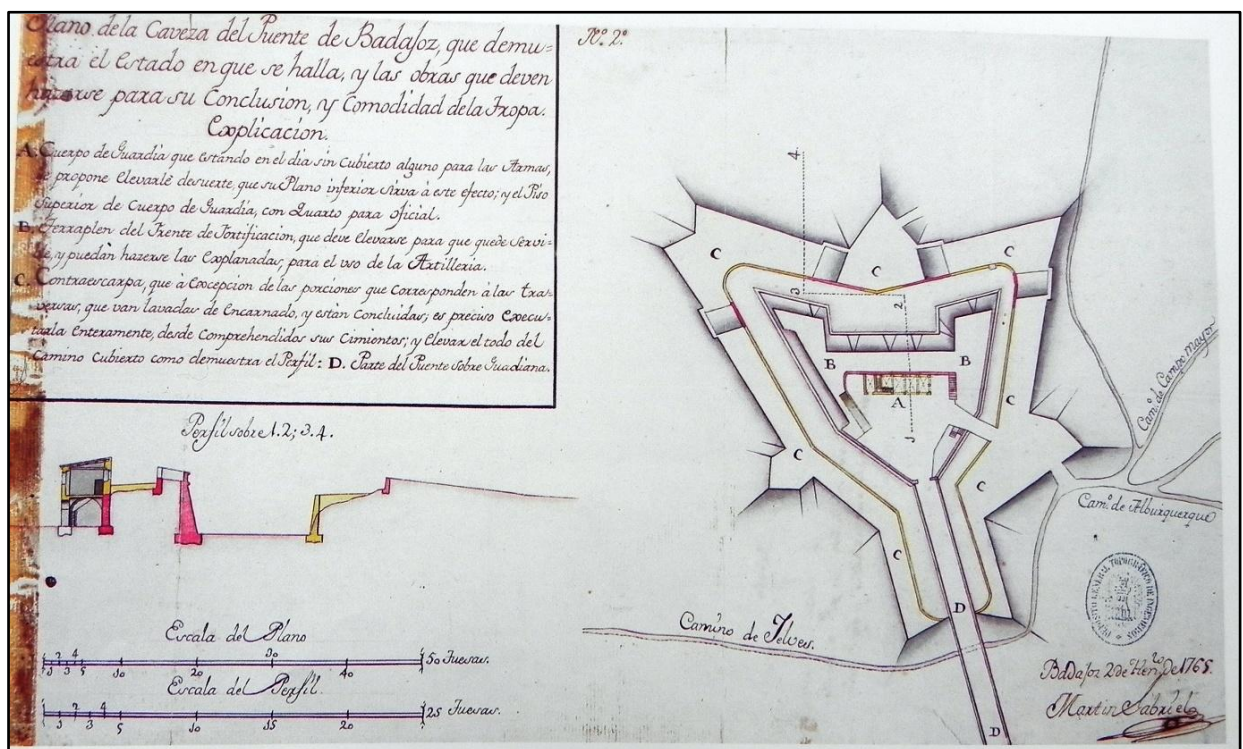 Plano de la Caveza del Puente de Badajoz, que demu=
estra el Estado en que se halla, y las obras que deven
hazerse para su Conclusion, y Comodidad de la Tropa.
Explicacion.
A. Cuerpo de Guardia que estando en el dia sin Cubierto alguno para las Armas,
se propone Elevarle desuerte, que su Plano inferior sirva à este efecto; y el Piso
Superior de Cuerpo de Guardia, con Quarto para oficial.
B. Terraplen del Frente de Fortificacion, que deve Elevarse para que quede Servi=
ble, y puedan hazerse las Explanadas, para el uso de la Artilleria.
C. Contraescarpa, que à Excepcion de las porciones que Corresponden à las tra=
versas, que van lavadas de Encarnado, y están Concluidas; es preciso execu=
tarla Enteramente, desde Comprehendidos sus Cimientos; y Elevar el todo del
Camino Cubierto como demuestra el Perfil: D. Parte del Puente sobre Guadiana.
Nº. 2º
4.
C
C
C
3
2.
B
B
A
1
C
C
C
C
D
D
Cam.º de Campo mayor
Cam.º de Alburquerque
Camino de Yelves.
Perfil sobre 1.2; 3.4.
Escala del Plano
1 2 3 4 5 10 20 30 40 50 Tuesas.
Escala del Perfil.
1 2 3 4 5 10 15 20 25 Tuesas.
DEPOSITO GENERAL TOPOGRAFICO DE INGENIEROS
Badajoz 2 de Hen.ro de 1765.
Martin Gabriel